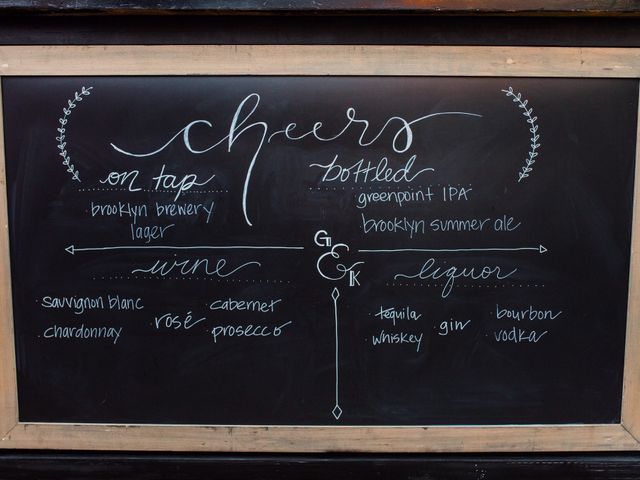 cheers
on tap
brooklyn brewery
lager
bottled
greenpoint IPA
brooklyn summer ale
G
&
K
wine
sauvignon blanc
chardonnay
rosé
cabernet
prosecco
liquor
tequila
whiskey
gin
bourbon
vodka